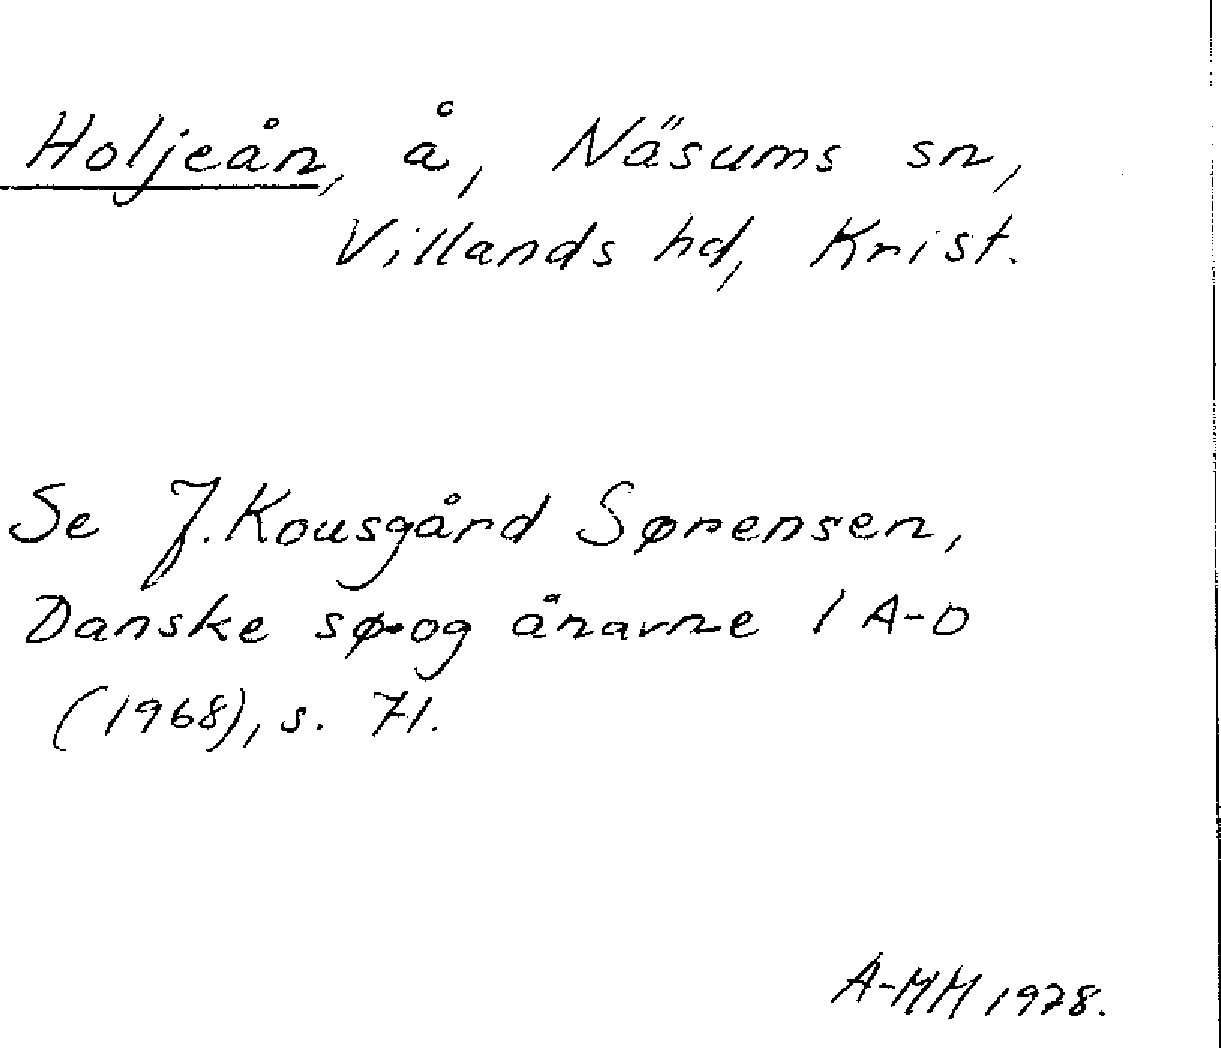 Holjeån, å, Näsums sn,
Villands hd, Krist.
Se J. Kousgård Sørensen,
Danske sø- og ånavne 1 A-D
(1968), s. 71.
A-MM 1978.